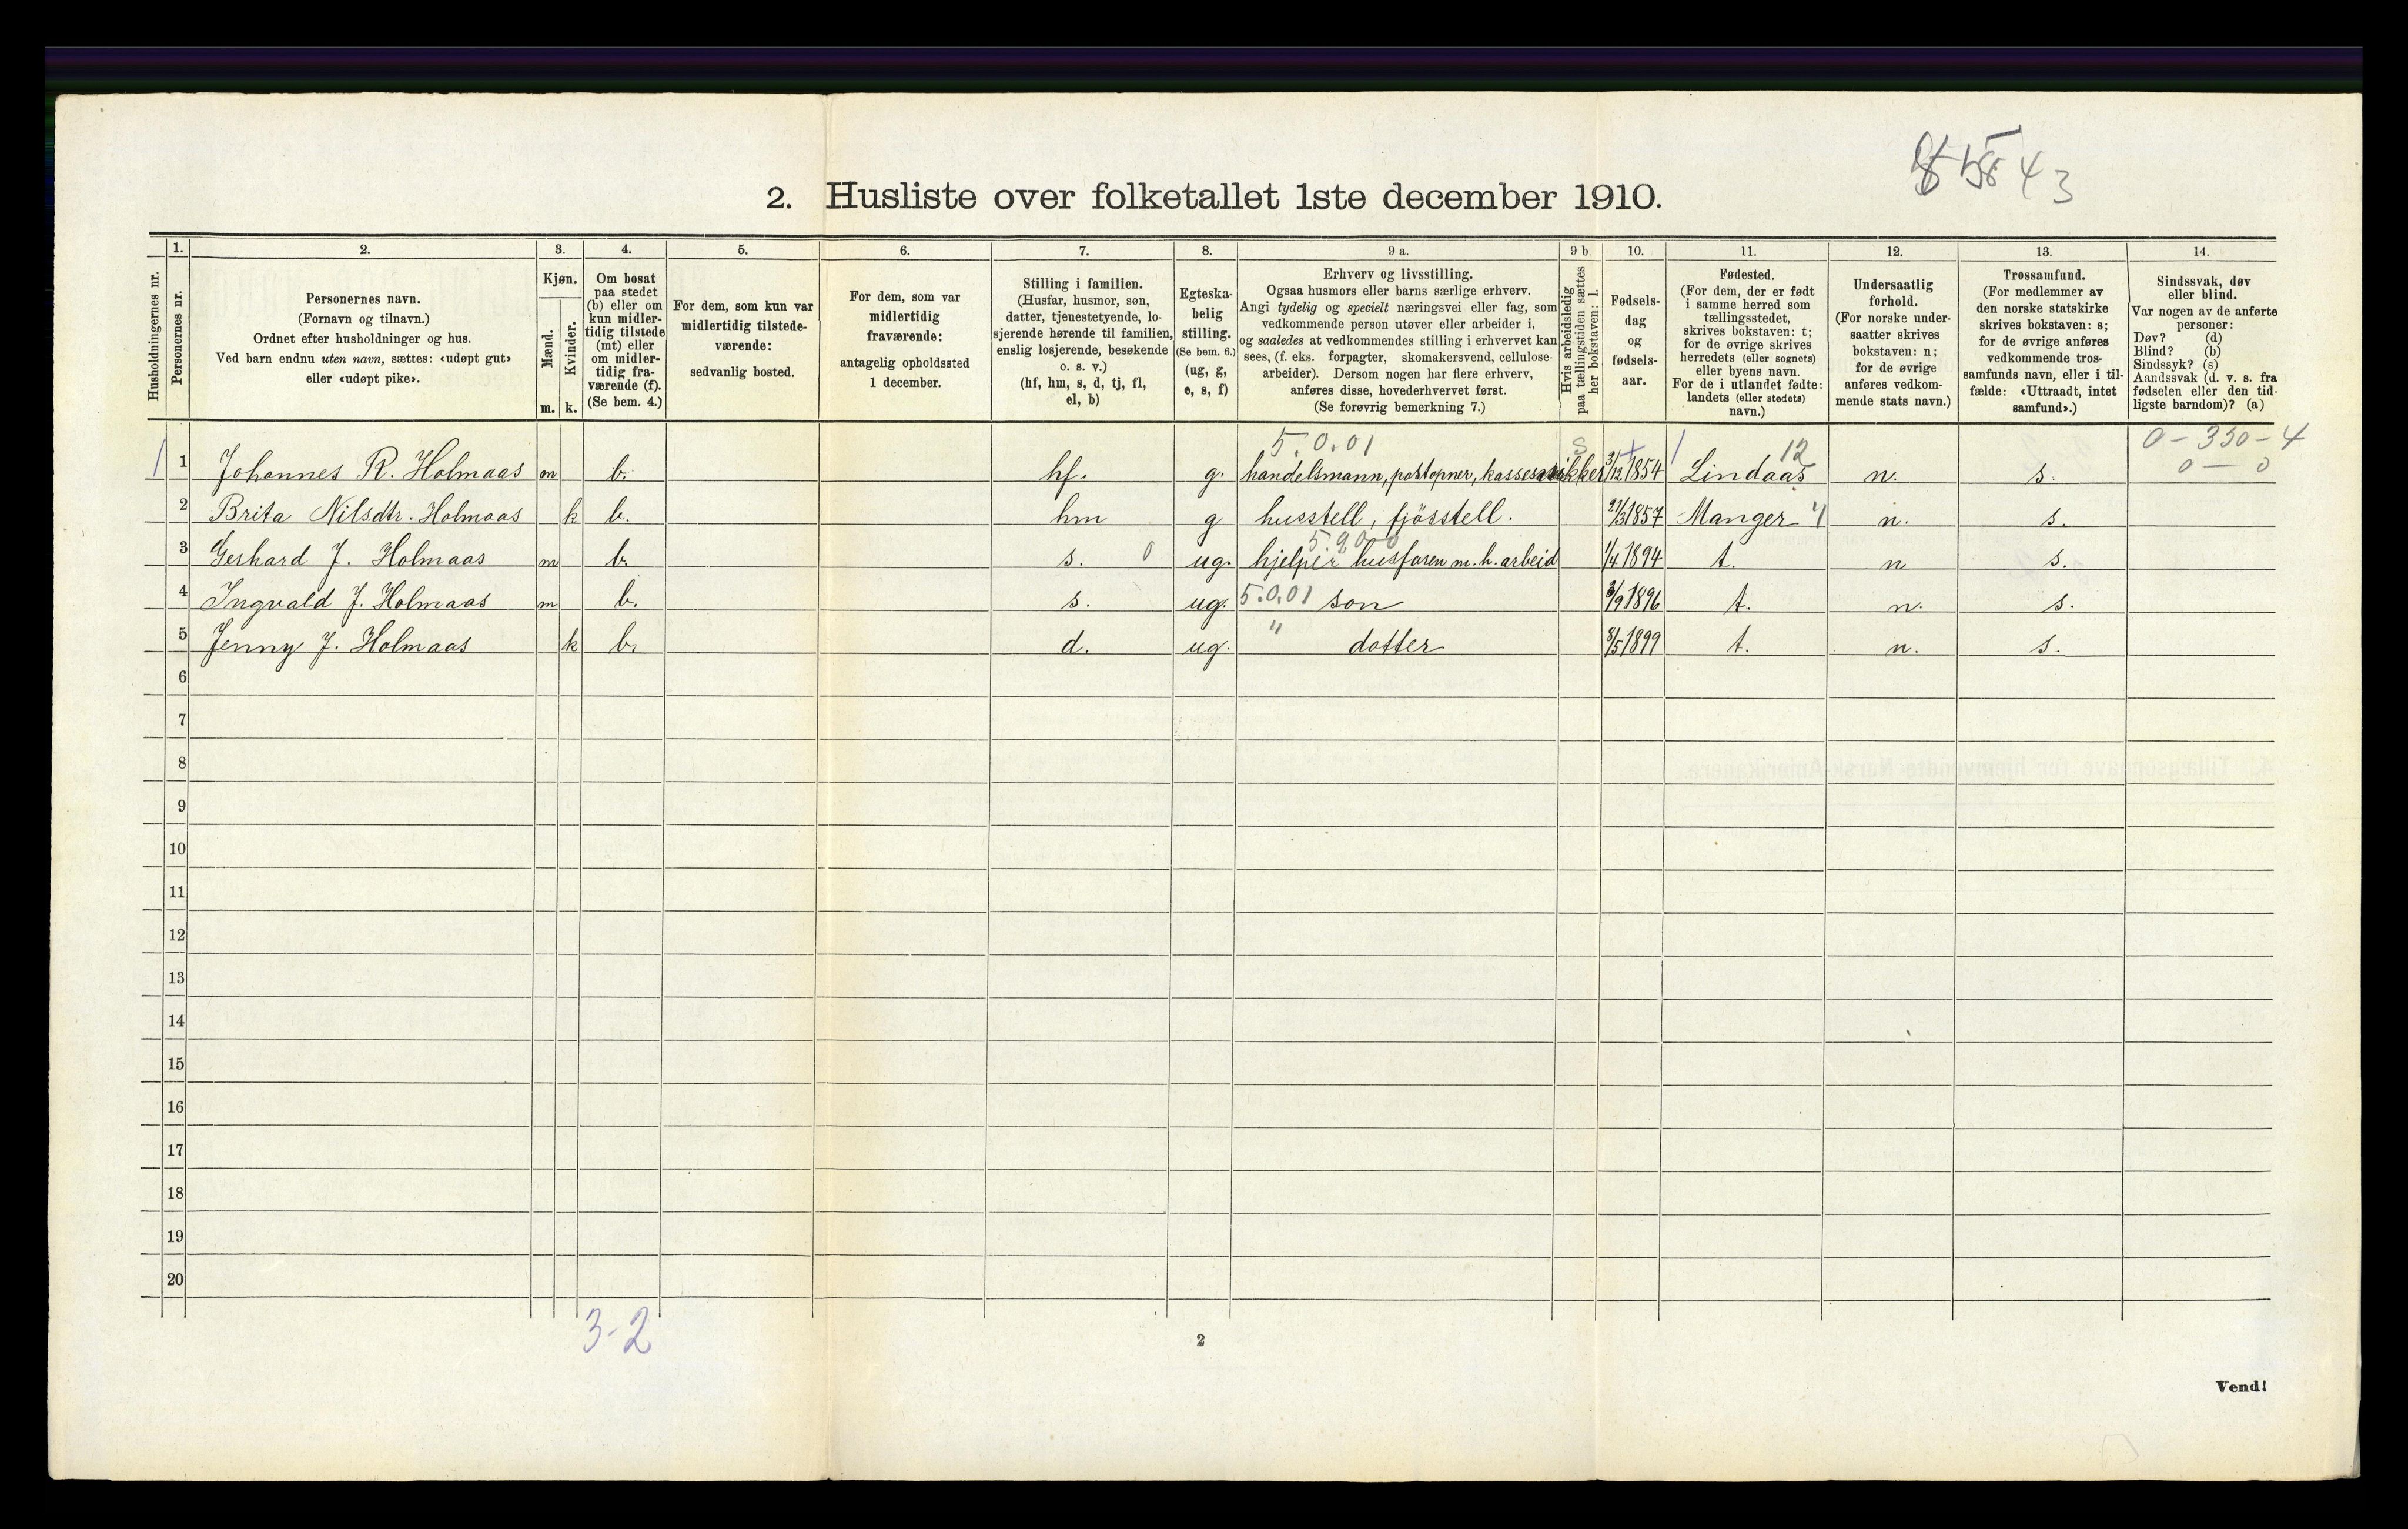 43
2. Husliste over folketallet 1ste december 1910.
1. 2. 3. 4. 5. 6. 7. 8. 9 a. 9 b 10. 11. 12. 13. 14.
Husholdningernes nr.
Personernes nr.
Personernes navn.
(Fornavn og tilnavn.)
Ordnet efter husholdninger og hus.
Ved barn endnu uten navn, sættes: «udøpt gut»
eller «udøpt pike».
Kjøn.
Mænd.
Kvinder.
m. k.
Om bosat
paa stedet
(b) eller om
kun midler-
tidig tilstede
(mt) eller
om midler-
tidig fra-
værende (f).
(Se bem. 4.)
For dem, som kun var
midlertidig tilstede-
værende:
sedvanlig bosted.
For dem, som var
midlertidig
fraværende:
antagelig opholdssted
1 december.
Stilling i familien.
(Husfar, husmor, søn,
datter, tjenestetyende, lo-
sjerende hørende til familien,
enslig losjerende, besøkende
o. s. v.)
(hf, hm, s, d, tj, fl,
el, b)
Egteska-
belig
stilling.
(Se bem. 6.)
(ug, g,
e, s, f)
Erhverv og livsstilling.
Ogsaa husmors eller barns særlige erhverv.
Angi tydelig og specielt næringsvei eller fag, som
vedkommende person utøver eller arbeider i,
og saaledes at vedkommendes stilling i erhvervet kan
sees, (f. eks. forpagter, skomakersvend, cellulose-
arbeider). Dersom nogen har flere erhverv,
anføres disse, hovederhvervet først.
(Se forøvrig bemerkning 7.)
Hvis arbeidsledig
paa tællingstiden sættes
her bokstaven: l.
Fødsels-
dag
og
fødsels-
aar.
Fødested.
(For dem, der er født
i samme herred som
tællingsstedet,
skrives bokstaven: t;
for de øvrige skrives
herredets (eller sognets)
eller byens navn.
For de i utlandet fødte:
landets (eller stedets)
navn.)
Undersaatlig
forhold.
(For norske under-
saatter skrives
bokstaven: n;
for de øvrige
anføres vedkom-
mende stats navn.)
Trossamfund.
(For medlemmer av
den norske statskirke
skrives bokstaven: s;
for de øvrige anføres
vedkommende tros-
samfunds navn, eller i til-
fælde: «Uttraadt, intet
samfund».)
Sindssvak, døv
eller blind.
Var nogen av de anførte
personer:
Døv? (d)
Blind? (b)
Sindssyk? (s)
Aandssvak (d. v. s. fra
fødselen eller den tid-
ligste barndom)? (a)
5.0.01 s + 1 12 0-330-4
1 1 Johannes R. Holmaas m b. hf. g. handelsmann, postopner, 3/12 1854 Lindaas n. s. 0-0
2 Brita Nilsdtr. Holmaas k b. hm g husstell, fjösstell. 21/3 1857 Manger 4 n. s.
5.90-0
3 Gerhard J. Holmaas m b. s. 0 ug. hjelper husfaren m. h. arbeid 1/4 1894 t. n s.
4 Ingvald J. Holmaas m b. s. ug. 5.0.01 son 3/9 1896 t. n. s.
5 Jenny J. Holmaas k b. d. ug. " dotter 8/5 1899 t. n. s.
6
7
8
9
10
11
12
13
14
15
16
17
18
19
20
3-2
2
Vend!